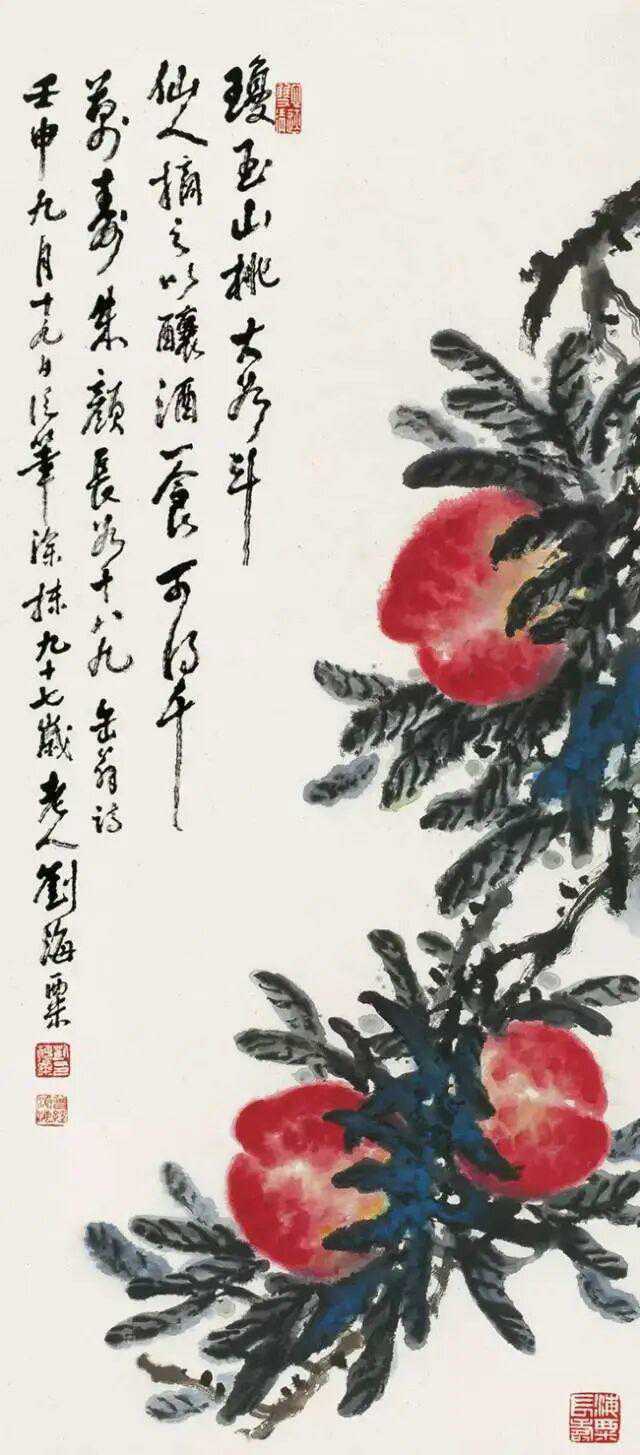 瓊玉山桃大如斗
仙人摘之以釀酒一食可得千
萬壽朱顏長如十八九 缶翁詩
壬申九月十九日信筆塗抹九十七歲老人劉海粟